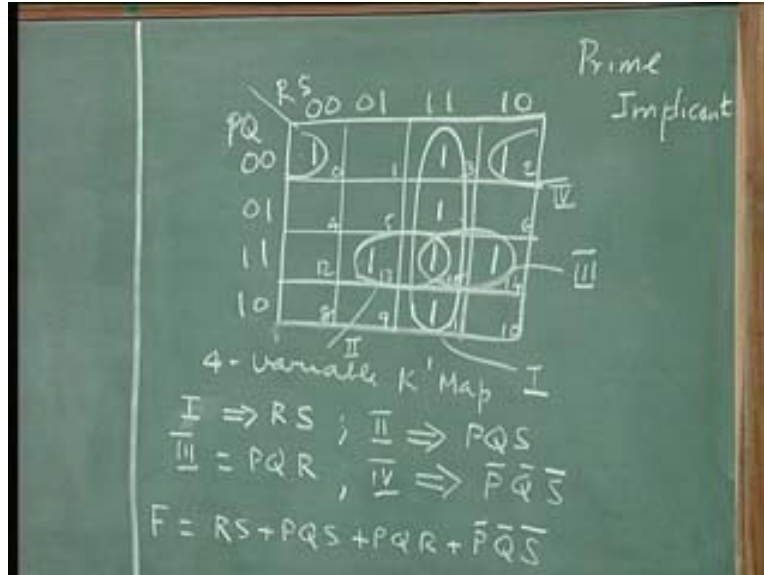 Prime
Implicant
RS 00 01 11 10
PQ
00 1 0 1 1 3 1 2
IV
01 4 5 1 7 6
11 12 1 13 1 15 1 14
III
10 8 9 1 11 10
II
4 - variable K'Map I
I ⇒ RS ; II ⇒ PQS
III = PQR , IV ⇒ P̅ Q̅ S̅
F = RS + PQS + PQR + P̅ Q̅ S̅